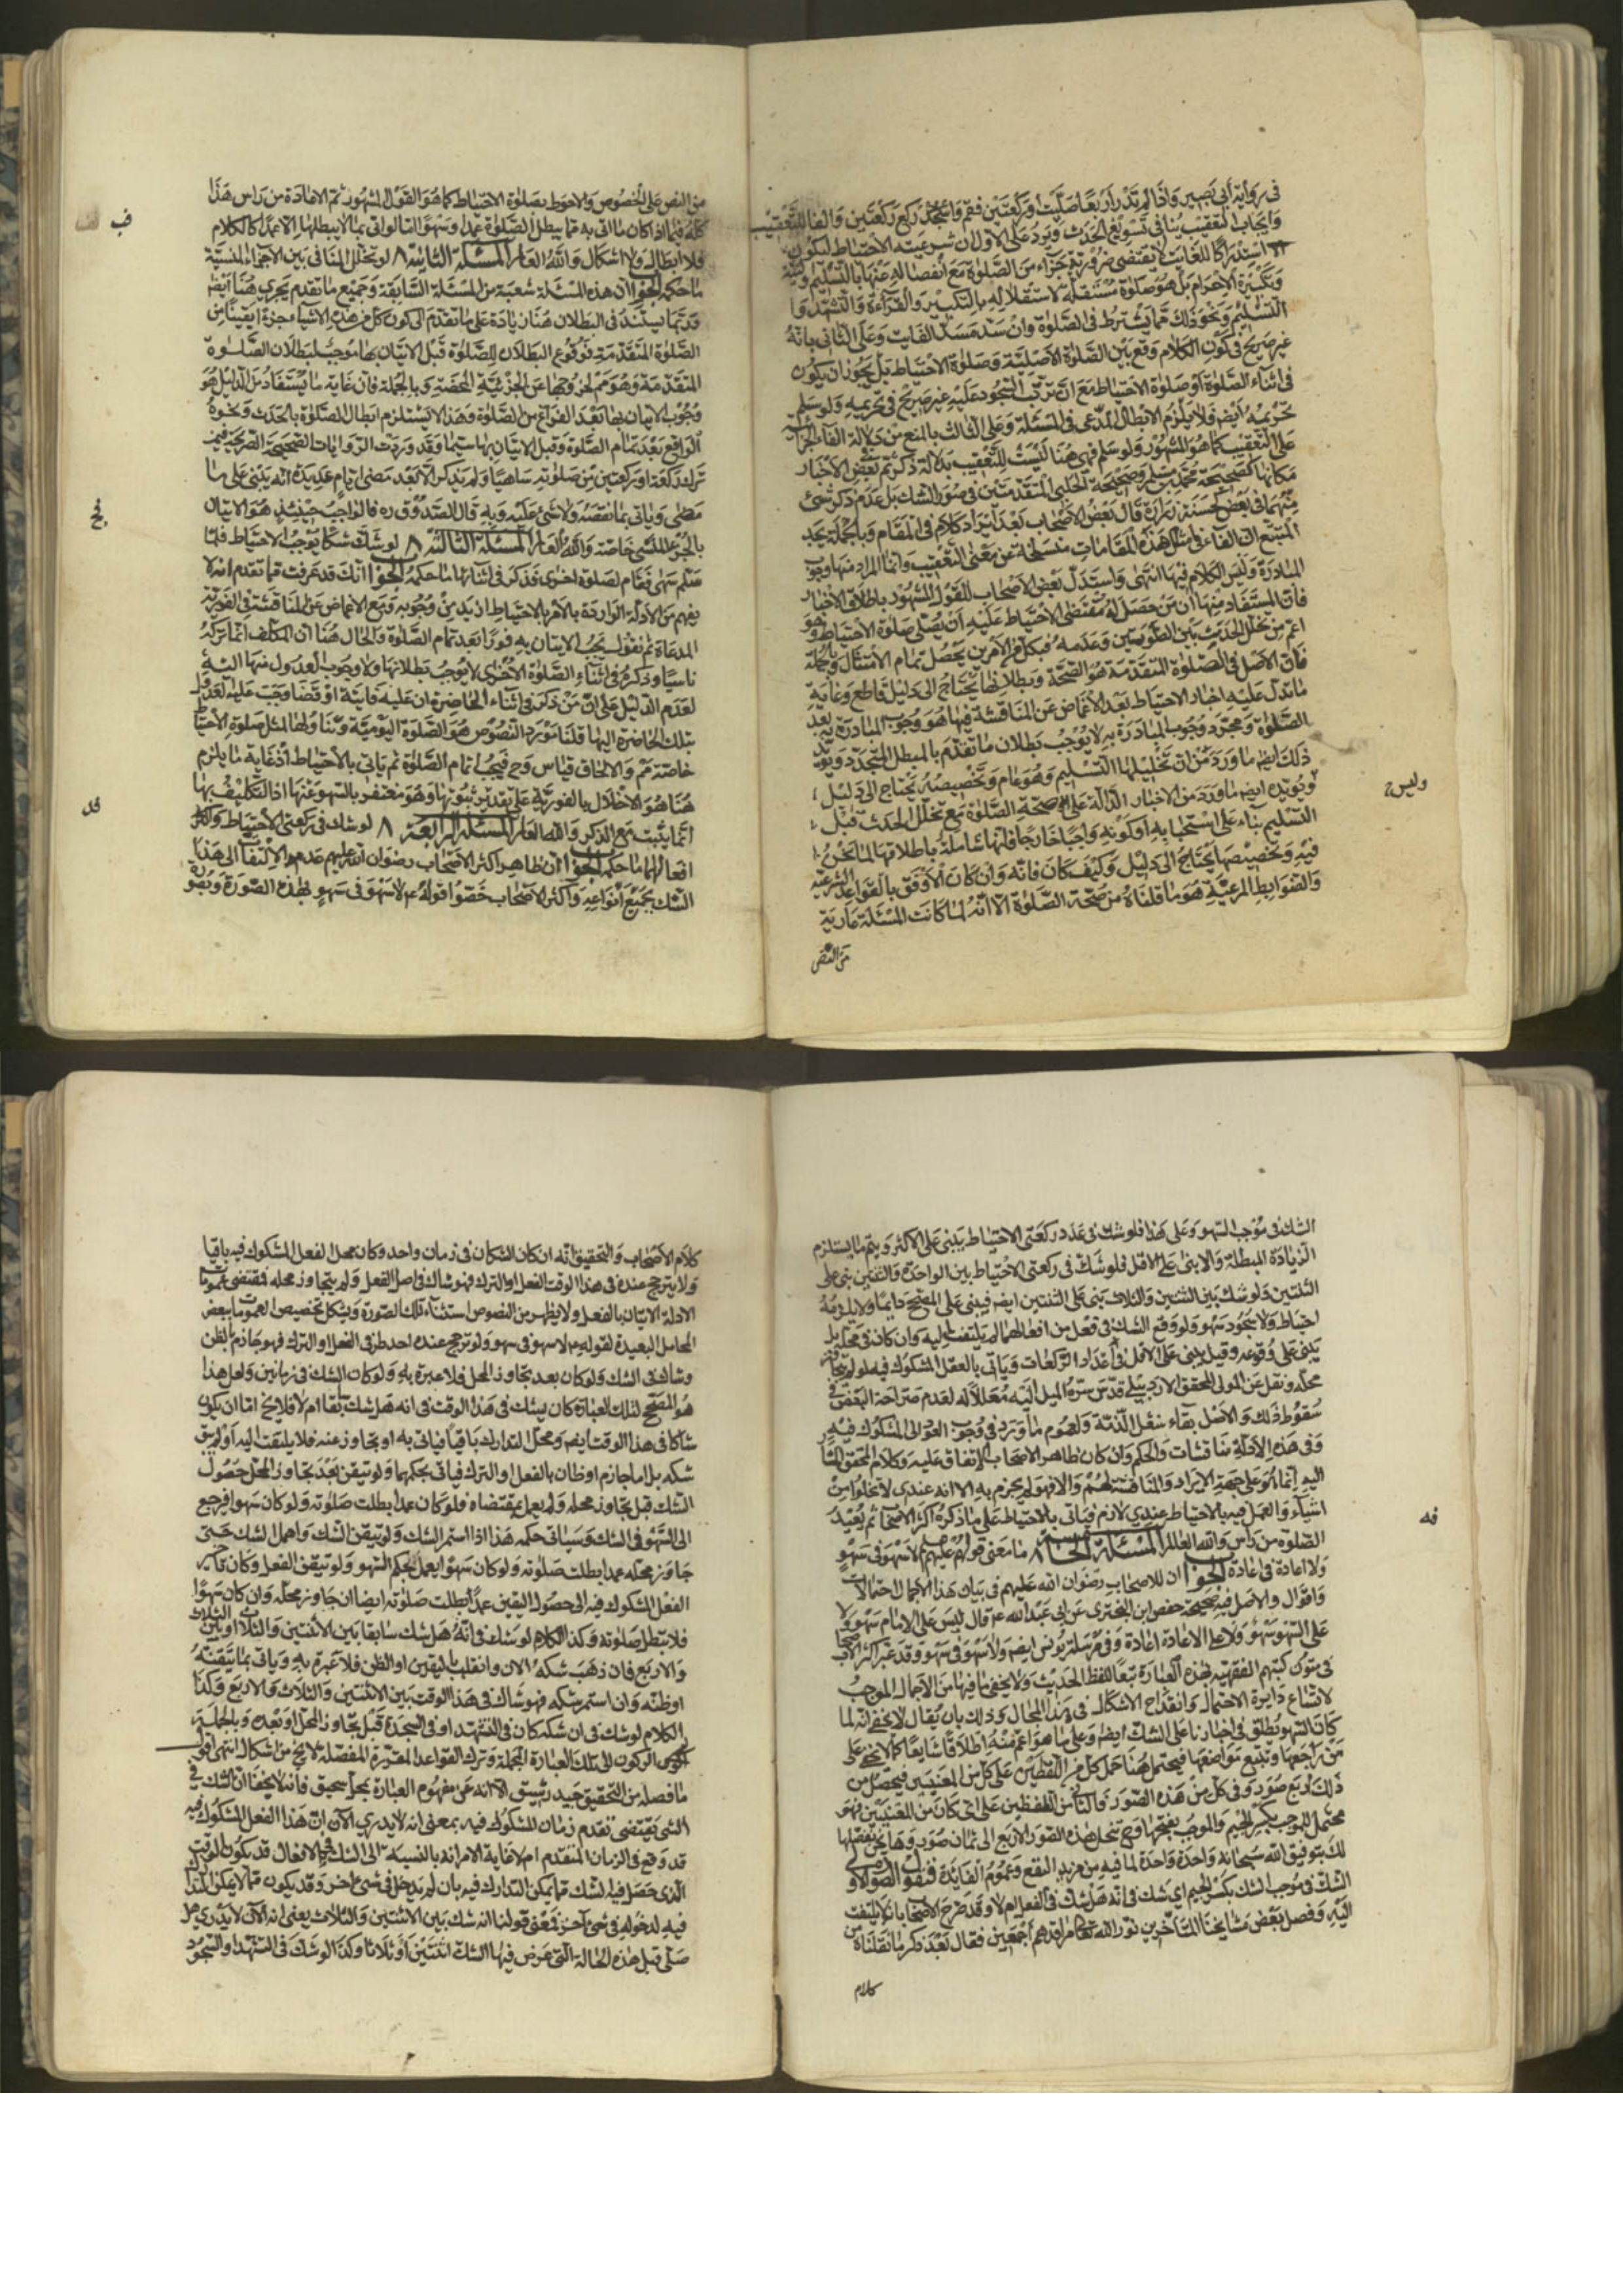 في رواية أبي بصير واذا لم تدر أربعا صليت او ركعتين فقم واركع ركعتين والفا للتعقيب
وايجاب التعقيب ينافي تسويغ الحدث ويرد على الاول ان شرعية الاحتياط ليكون
استدراكا للفائت لا تقتضى ضرورته جزاء من الصلوة مع انفصاله عنها بالتسليم ونية
وتكبيرة الاحرام بل هو صلوة مستقلة لاستقلاله بالتكبير والقراءة والتشهد وا
التسليم ونحو ذلك مما يشترط فى الصلوة وان سد مسد الفايت وعلى الثانى بانه
غير صريح في كون الكلام وقع بين الصلوة الاصلية وصلوة الاحتياط بل يجوز ان يكون
في اثناء الصلوة او صلوة الاحتياط مع ان ترتب السجود عليه غير صريح في تحريمه ولو سلم
تحريمه ايضا فلا يلزم الابطال المدعى فى المسئلة وعلى الثالث بالمنع من دلالة الفاء الجزائية
على التعقيب كما هو المشهور ولو سلم فهي هنا ليست للتعقيب بدلالة ذكر ثم في بعض الاخبار
مكانها كصحيحة محمد بن مسلم وصحيحة الحلبي المتقدمتين فى صور الشك بل عدم ذكر شئ
منهما فى بعض كحسنة زرارة قال بعض الاصحاب بعد ايراد كلام فى المقام وبالجملة يجد
المتتبع ان الفاء فى مثل هذه المقامات منسلخة عن معنى التعقيب وانما المراد منها وجوب
المبادرة وليس الكلام فيها انتهى واستدل بعض الاصحاب للقول المشهور باطلاق الاخبار
فان المستفاد منها ان من حصل له مقتضى الاحتياط عليه ان يصلى صلوة الاحتياط وهو
اعم من تخلل الحدث بين الصلوتين وعدمه فبكل من الامرين يحصل تمام الامتثال وبالجملة
فان الاصل فى الصلوة المتقدمة هو الصحة وبطلانها يحتاج الى دليل قاطع وغاية
ما تدل عليه اخبار الاحتياط بعد الاغماض عن المناقشة فيها هو وجوب المبادرة به بعد
الصلوة ومجرد وجوب المبادرة به لا يوجب بطلان ما تقدم بالمبطل المتجدد ويؤيد
ذلك ايضا ما ورد من ان تحليلها التسليم وهو عام وتخصيصه يحتاج الى دليل
ويؤيده ايضا ما ورد من الاخبار الدالة على صحة الصلوة مع تخلل الحدث قبل
التسليم بناء على استحبابه او كونه واجبا خارجا فانها شاملة باطلاقها لما نحن
فيه وتخصيصها يحتاج الى دليل وكيف كان فانه وان كان الاوفق بالقواعد الشرعية
والضوابط المرعية هو ما قلناه من صحة الصلوة الا انه لما كانت المسئلة عارية
من النص
وليس
من النص على الخصوص والاحوط بصلوة الاحتياط كما هو القول المشهور ثم الاعادة من راس هذا
كله فيما اذا كان ما اتى به مما يبطل الصلوة عمدا وسهوا اما لو اتى بما لا يبطلها الا عمدا كالكلام
فلا ابطال ولا اشكال والله العالم المسئلة الثانية لو تخلل المنافى بين الاجزاء المنسية
ما حكمه الجواب ان هذه المسئلة شعبة من المسئلة السابقة وجميع ما تقدم يجري هنا ايضا
وربما يستند فى البطلان هنا زيادة على ما تقدم الى كون كل من هذه الاشياء جزءا يقينا من
الصلوة المتقدمة فوقوع البطلان للصلوة قبل الاتيان بها موجب لبطلان الصلوة
المتقدمة وهو وهم لخروجها عن الجزئية المحضة وبالجملة فان غاية ما يستفاد من الدليل هو
وجوب الاتيان بها بعد الفراغ من الصلوة وهذا لا يستلزم ابطال الصلوة بالحدث ونحوه
الواقع بعد تمام الصلوة وقبل الاتيان بها سيما وقد وردت الروايات الصحيحة الصريحة فيمن
ترك ركعة او ركعتين من صلوته ساهيا ولم يذكر الا بعد مضى ايام عديدة انه يبنى على ما
مضى وياتى بما نقصه ولا شئ عليه وبه قال الصدوق ره فالواجب حينئذ هو الاتيان
بالجزء المنسى خاصة والله العالم المسئلة الثالثة لو شك شكا يوجب الاحتياط فلما
سلم سهى فقام لصلوة اخرى فذكر فى اثنائها ما حكمه الجواب انك قد عرفت مما تقدم انه لا
يفهم من الادلة الواردة بالامر بالاحتياط ازيد من وجوبه ومع الاغماض عن المناقشة فى الفورية
المدعاة ثم نقول يجب الاتيان به فورا بعد تمام الصلوة والحال هنا ان المكلف انما تركه
ناسيا وذكره فى اثناء الصلوة الاخرى لا يوجب بطلانها ولا وجوب العدول منها اليه
لعدم الدليل على ان من ذكر فى اثناء الحاضرة ان عليه فايتة او قضا وجب عليه العدول
بتلك الحاضرة اليها قلنا مورد النصوص هو الصلوة اليومية وتناولها لمثل صلوة الاحتياط
خاصة مم والالحاق قياس وح فيجب اتمام الصلوة ثم ياتى بالاحتياط اذ غاية ما يلزم
هنا هو الاخلال بالفورية على تقدير ثبوتها وهو مغتفر بالسهو عنها اذ التكليف بها
انما يثبت مع الذكر والله العالم المسئلة الرابعة لو شك فى ركعتى الاحتياط وكذا
افعالهما ما حكمه الجواب ان ظاهر اكثر الاصحاب رضوان الله عليهم عدم الالتفات الى هذا
الشك بجميع انواعه واكثر الاصحاب خصوا قوله ع لا سهو فى سهو بهذه الصورة وبصورة
الشك فى موجب السهو وعلى هذا فلو شك فى عدد ركعتى الاحتياط يبنى على الاكثر ويتم ما لم يستلزم
الزيادة المبطلة والا بنى على الاقل فلو شك فى ركعتى الاحتياط بين الواحدة والثنتين بنى على
الثنتين ولو شك بين الثنتين والثلاث بنى على الثنتين ايضا فيبنى على المصحح دايما ولا يلزمه
احتياط ولا سجود سهو ولو وقع الشك فى فعل من افعالهما لم يلتفت اليه وان كان فى محله بل
يبنى على وقوعه وقيل يبنى على الاقل فى اعداد الركعات وياتى بالفعل المشكوك فيه لو لم يتجاوز
محله ونقل عن المولى المحقق الاردبيلى قدس سره الميل اليه معللا له لعدم صراحة النص فى
سقوط ذلك والاصل بقاء شغل الذمة ولعموم ما ورد فى وجوب العود الى المشكوك فيه
وفى هذه الادلة مناقشات والحكم وان كان ظاهر الاصحاب الاتفاق عليه وكلام المحقق المشار
اليه انما هو على جهة الايراد والمناقشة لهم والا فهو لم يجزم به الا انه عندى لا تخلوا من
اشكال والعمل فيه بالاحتياط عندى لازم فياتى بالاحتياط على ما ذكره اكثر الاصحاب ثم يعيد
الصلوة من راس والله العالم المسئلة الخامسة ما معنى قولهم عليهم السلام لا سهو فى سهو
ولا اعادة فى اعادة الجواب ان للاصحاب رضوان الله عليهم فى بيان هذا الاجمال احتمالات
واقوال والاصل فيه صحيحة حفص ابن البختري عن ابى عبد الله ع قال ليس على الامام سهو ولا
على السهو سهو ولا على الاعادة اعادة وفى مرسلة يونس ايضا ولا سهو فى سهو وقد عبر اكثر الاصحاب
فى متون كتبهم الفقهية بهذه العبارة تبعا للفظ الحديث ولا يخفى ما فيها من الاجمال الموجب
لاتساع دايرة الاحتمال وانقداح الاشكال فى هذا المجال وذلك بان يقال لا يخفى انه لما
كان السهو يطلق فى اخبارنا على الشك ايضا وعلى ما هو اعم منه اطلاقا شايعا كما لا يخفى على
من راجعها وتتبع مواضعها فيحتمل هنا حمل كل من اللفظين على كل من المعنيين فيحصل من
ذلك اربع صور وفى كل من هذه الصور فالثانى من اللفظين على اى كان من المعنيين فهو
محتمل للموجب بكسر الجيم والموجب بفتحها وح تنحل هذه الصور الاربع الى ثمان صور وها نحن نفصلها
لك بتوفيق الله سبحانه واحدة واحدة لما فيه من مزيد النفع وعموم الفايدة فنقول الصورة الاولى
الشك فى موجب الشك بكسر الجيم اي شك فى انه هل شك فى الفعل ام لا وقد صرح الاصحاب بانه لا يلتفت
اليه وفصل بعض مشايخنا المتاخرين نور الله تعالى مراقدهم اجمعين فقال بعد ذكر ما نقلناه من
كلام
كلام الاصحاب والتحقيق انه ان كان الشكان فى زمان واحد وكان محل الفعل المشكوك فيه باقيا
ولا يترجح عنده فى هذا الوقت الفعل او الترك فهو شاك فى اصل الفعل ولم يتجاوز محله فمقتضى عموما
الادلة الاتيان بالفعل ولا يظهر من النصوص استثناء تلك الصورة ويشكل تخصيص العمومات ببعض
المحامل البعيدة لقوله ع لا سهو فى سهو ولو ترجح عنده احد طرفى الفعل او الترك فهو جازم بالظن
وشاك فى الشك ولو كان بعد تجاوز المحل فلا عبرة به ولو كان الشك فى زمانين ولعل هذا
هو المصحح لتلك العبارة كان يشك فى هذا الوقت فى انه هل شك سابقا ام لا فلا يخ اما ان يكون
شاكا فى هذا الوقت ايضا ومحل التدارك باقيا فياتى به او تجاوز عنه فلا يلتفت اليه او لم يبق
شكه بل اما جازم او ظان بالفعل او الترك فياتى بحكمهما ولو تيقن بعد تجاوز المحل حصول
الشك قبل تجاوز محله ولم يعمل بمقتضاه فلو كان عمدا بطلت صلوته ولو كان سهوا فيرجع
الى السهو فى الشك وسياتى حكمه هذا اذا استمر الشك ولو تيقن الشك واهمل الشك حتى
جاوز محله عمدا بطلت صلوته ولو كان سهوا يعمل بحكم السهو ولو تيقن الفعل وكان تاخير
الفعل المشكوك فيه الى حصول اليقين عمدا بطلت صلوته ايضا ان جاوز محله وان كان سهوا
فلا تبطل صلوته وكذا الكلام لو شك فى انه هل شك سابقا بين الاثنتين والثلاث او بين الثلاث
والاربع فان ذهب شكه الان وانقلب باليقين او الظن فلا عبرة به وياتى بما تيقنه
او ظنه وان استمر شكه فهو شاك فى هذا الوقت بين الاثنتين والثلاث والاربع وكذا
الكلام لو شك فى ان شكه كان فى التشهد او فى السجدة قبل تجاوز المحل او بعده وبالجملة
الركون الى تلك العبارة المجملة وترك القواعد المقررة المفصلة لا يخ من اشكال انتهى اقول
ما فصله من التحقيق جيد رشيق الا انه عن مفهوم العبارة بمحل سحيق فانه لا يخفا ان الشك فى
الشئ يقتضى تقدم زمان المشكوك فيه بمعنى انه لا يدري الان ان هذا الفعل المشكوك فيه
قد وقع فى الزمان المتقدم ام لا غاية الامر انه بالنسبة الى الشك فى الافعال قد يكون الوقت
الذى حصل فيه الشك مما يمكن التدارك فيه بان لم يدخل فى شئ اخر وقد يكون مما لا يمكن التدارك
فيه لدخوله فى شئ آخر فمعنى قولنا انه شك بين الاثنتين والثلاث يعنى انه الآن لا يدرى هل
صلى قبل هذه الحالة التى عرض فيها الشك اثنتين او ثلاثا وكذا لو شك فى التشهد او السجود